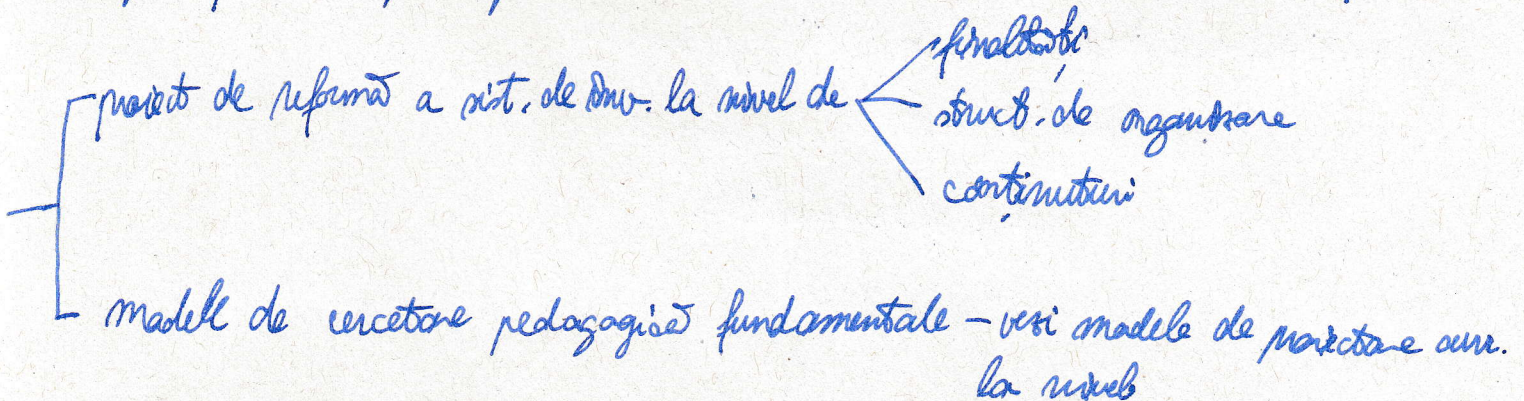 finalități
proiect de reformă a sist. de înv. la nivel de
struct. de organizare
conținuturi
modele de cercetare pedagogică fundamentale – vezi modele de proiectare curr.
la nivel